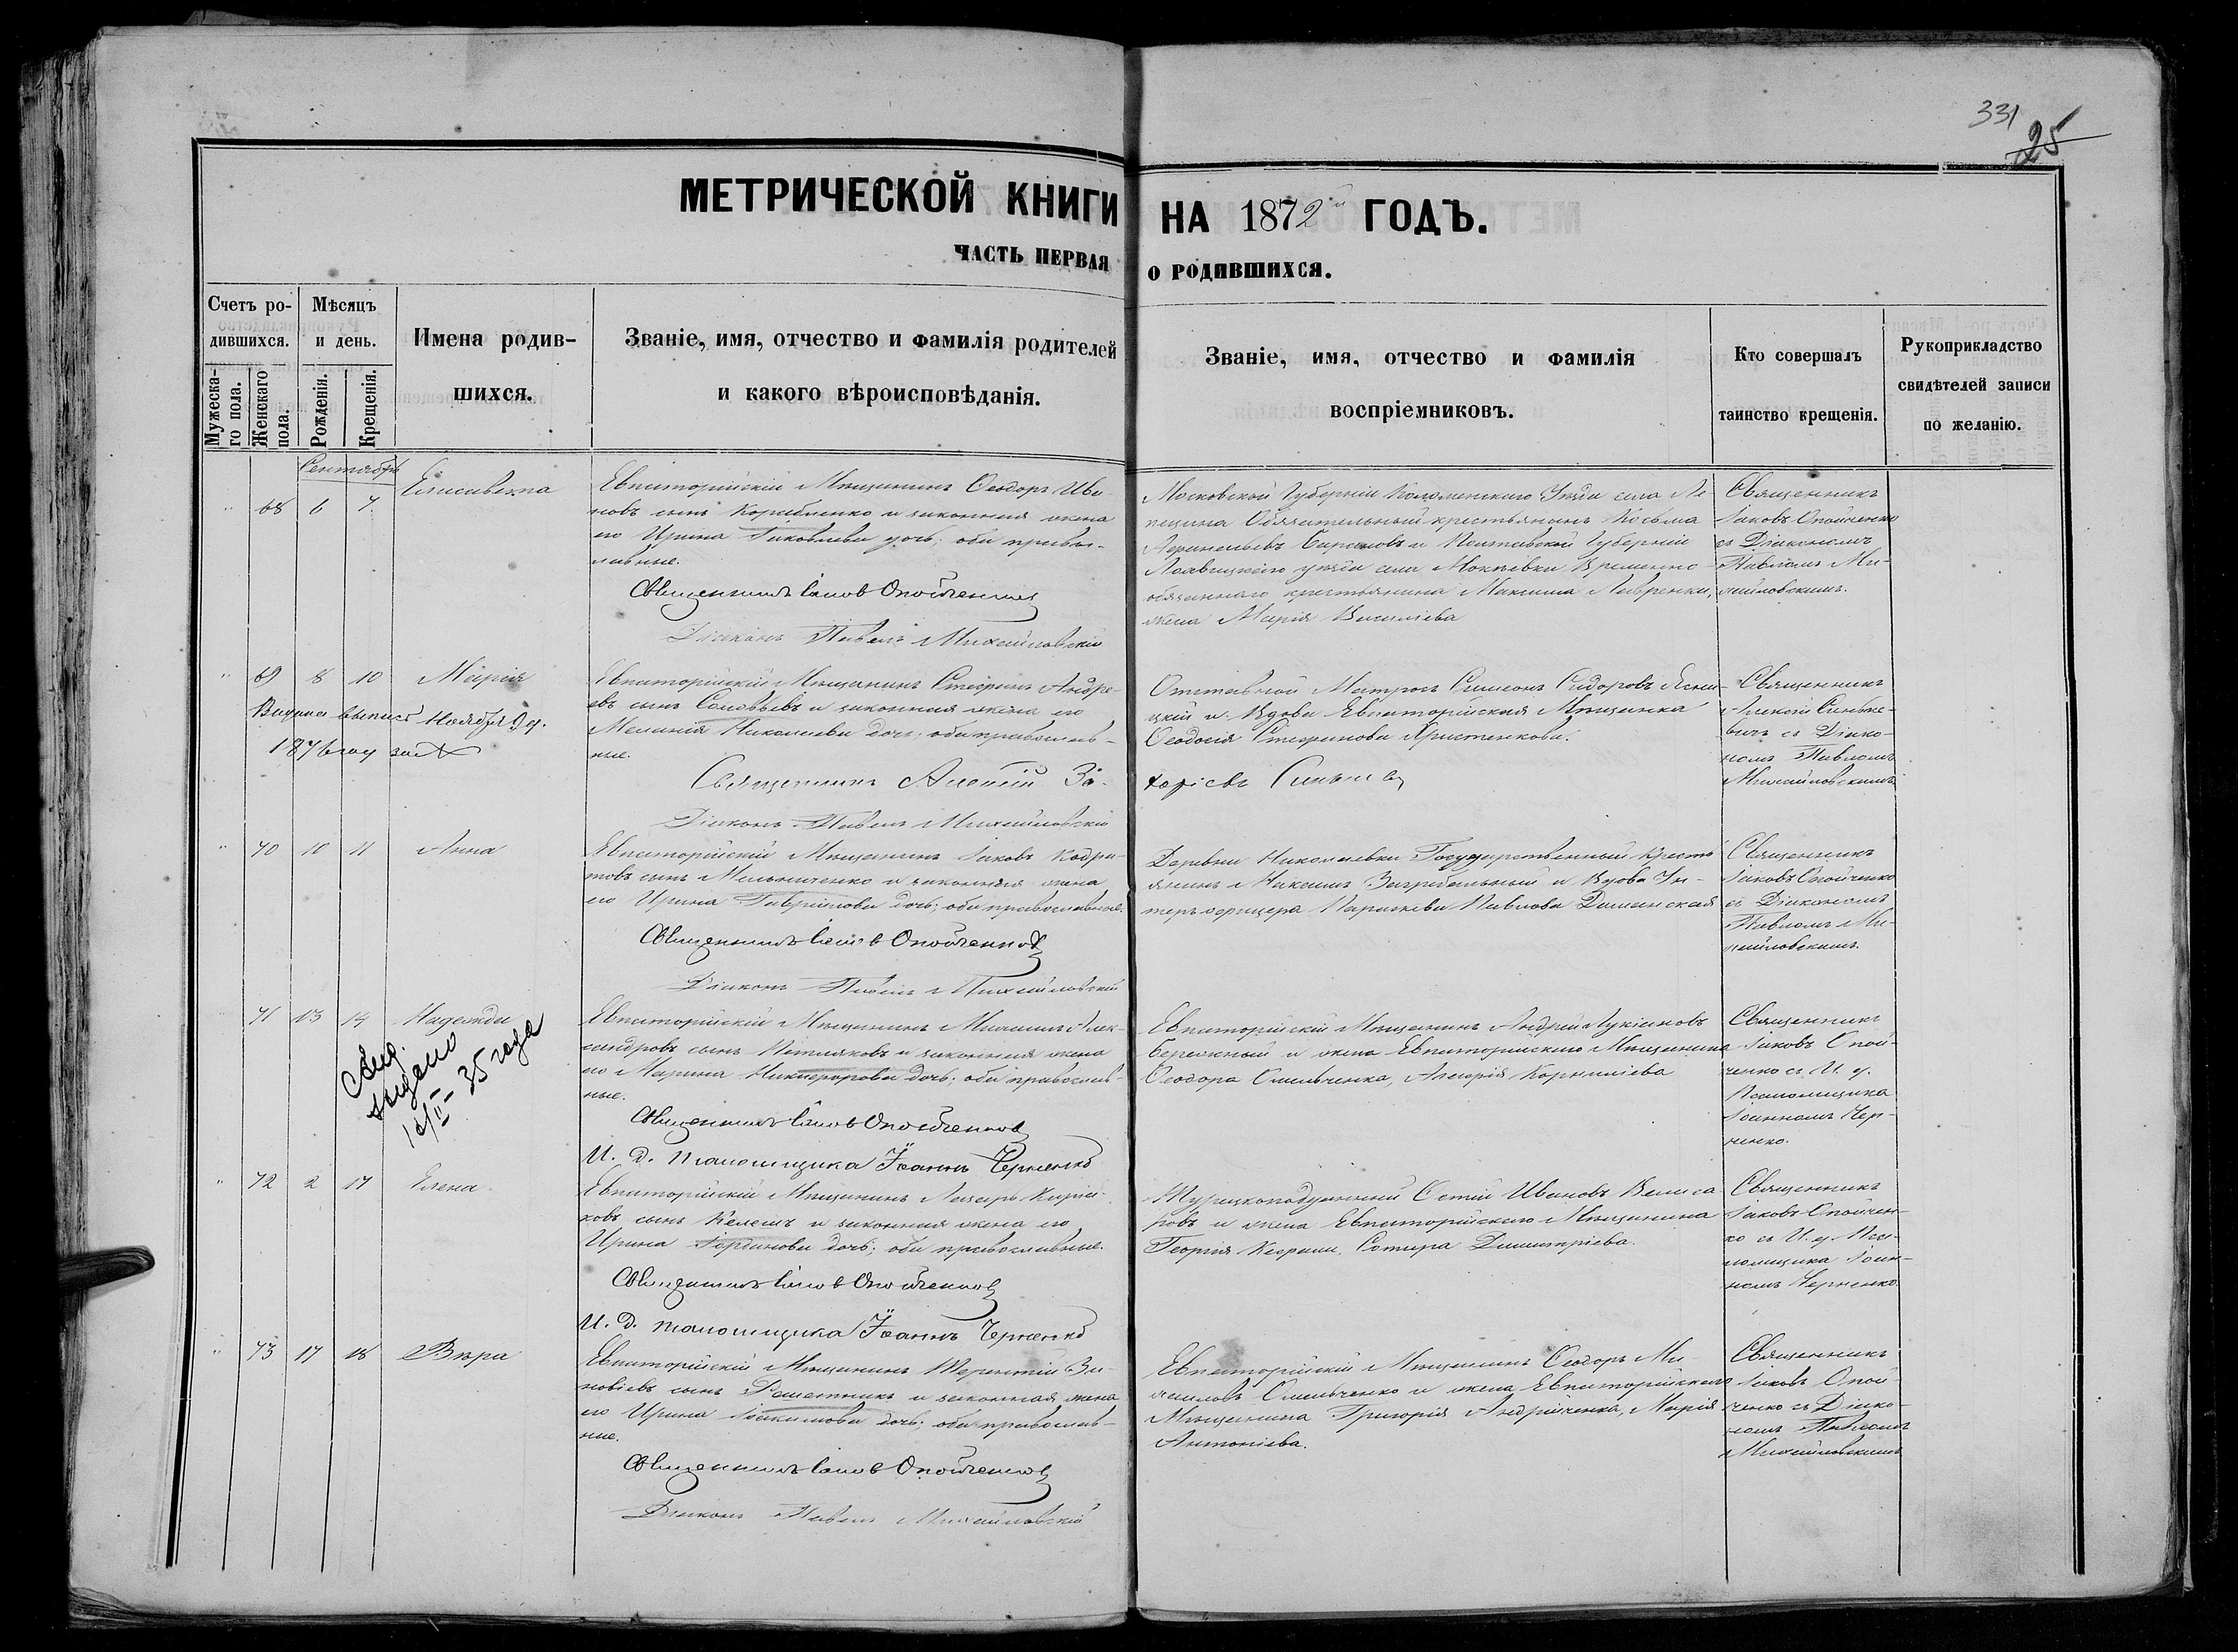 331
25
МЕТРИЧЕСКОЙ КНИГИ НА 1872й ГОДЪ.
ЧАСТЬ ПЕРВАЯ О РОДИВШИХСЯ.
Счетъ ро-
дившихся.
Мужеска-
го пола.
Женскаго
пола.
Мѣсяцъ
и день.
Рожденія.
Крещенія.
Имена родив-
шихся.
Званіе, имя, отчество и фамилія родителей
и какого вѣроисповѣданія.
Званіе, имя, отчество и фамилія
воспріемниковъ.
Кто совершалъ
таинство крещенія.
Рукоприкладство
свидѣтелей записи
по желанію.
Сентябрь
" 68 6 7 Елисавета
Евпаторійскій Мѣщанинъ Ѳеодоръ Ива-
новъ сынъ и законная жена
его Ирина Іаковлева дочь; оба правос-
лавные.
Священникъ Іаковъ Опойченко
Діаконъ Павелъ Михайловскій
Московской Губерніи Коломенскаго Уѣзда села
Обязательный крестьянинъ Козьма
и Полтавской Губерніи
уѣзда села Временно-
обязаннаго крестьянина Максима
жена Марія Василіева
Священникъ
Іаковъ Опойченко
съ Діакономъ
Павломъ Ми-
хайловскимъ.
" 69 8 10 Марія
Выдана выпись Ноября 9 д.
1876 году за №
Евпаторійскій Мѣщанинъ Стефанъ Андре-
евъ сынъ Соловьевъ и законная жена его
Меланія Николаева дочь; оба православ-
ные.
Священникъ Алексій За-
харіевъ
Діаконъ Павелъ Михайловскій
Отставной Матросъ Симеонъ Сидоровъ
цкій и Вдова Евпаторійская Мѣщанка
Ѳеодосія Стефанова Христенкова.
Священникъ
Алексій
съ Діако-
номъ Павломъ
Михайловскимъ
" 70 10 11 Анна
Евпаторійскій Мѣщанинъ Іаковъ Кодра-
товъ сынъ Мельниченко и законная жена
его Ирина Гаврилова дочь; оба православные.
Священникъ Іаковъ Опойченко
Діаконъ Павелъ Михайловскій
Деревни Николаевки Государственный кресть
янинъ Максимъ Загребельный и Вдова Ун-
теръ офицера Параскева Павлова
Священникъ
Іаковъ Опойченко
съ Діакономъ
Павломъ Ми-
хайловскимъ.
" 71 13 14 Надежда
Свид.
выдано
35 года
Евпаторійскій Мѣщанинъ Михаилъ Алек-
сандровъ сынъ и законная жена
его Марина Никифорова дочь; оба православ-
ные.
Священникъ Іаковъ Опойченко
И. д. псаломщика Іоаннъ Черненко
Евпаторійскій Мѣщанинъ Андрей Лукіановъ
Бережный и жена Евпаторійскаго Мѣщанина
Ѳеодора Омельченка, Корниліева
Священникъ
Іаковъ Опой-
ченко съ И. д.
Псаломщика
Іоанномъ Чер-
ненко.
" 72 2 17 Елена
Евпаторійскій Мѣщанинъ Лазарь Киріа-
ковъ сынъ и законная жена его
Ирина дочь; оба православные.
Священникъ Іаковъ Опойченко
И. д. псаломщика Іоаннъ Черненко
Турецкоподданный Ивановъ
ровъ и жена Евпаторійскаго Мѣщанина
Георгія Сотира Димитріева.
Священникъ
Іаковъ Опойчен-
ко съ И. д. Пса-
ломщика Іоан-
номъ Черненко
" 73 17 18 Вѣра
Евпаторійскій Мѣщанинъ Терентій Зи-
новіевъ сынъ Решетникъ и законная жена
его Ирина Іоакимова дочь; оба православ-
ные.
Священникъ Іаковъ Опойченко
Діаконъ Павелъ Михайловскій
Евпаторійскій Мѣщанинъ Ѳеодоръ Ми-
хаиловъ Омельченко и жена Евпаторійскаго
Мѣщанина Григорія Андрійченка, Марія
Антоніева.
Священникъ
Іаковъ Опой-
ченко съ Діако-
номъ Павломъ
Михайловскимъ